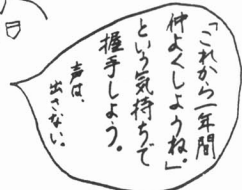 「これから一年間
仲よくしようね。」
という気持ちで
握手しよう。
声は、
出さない。